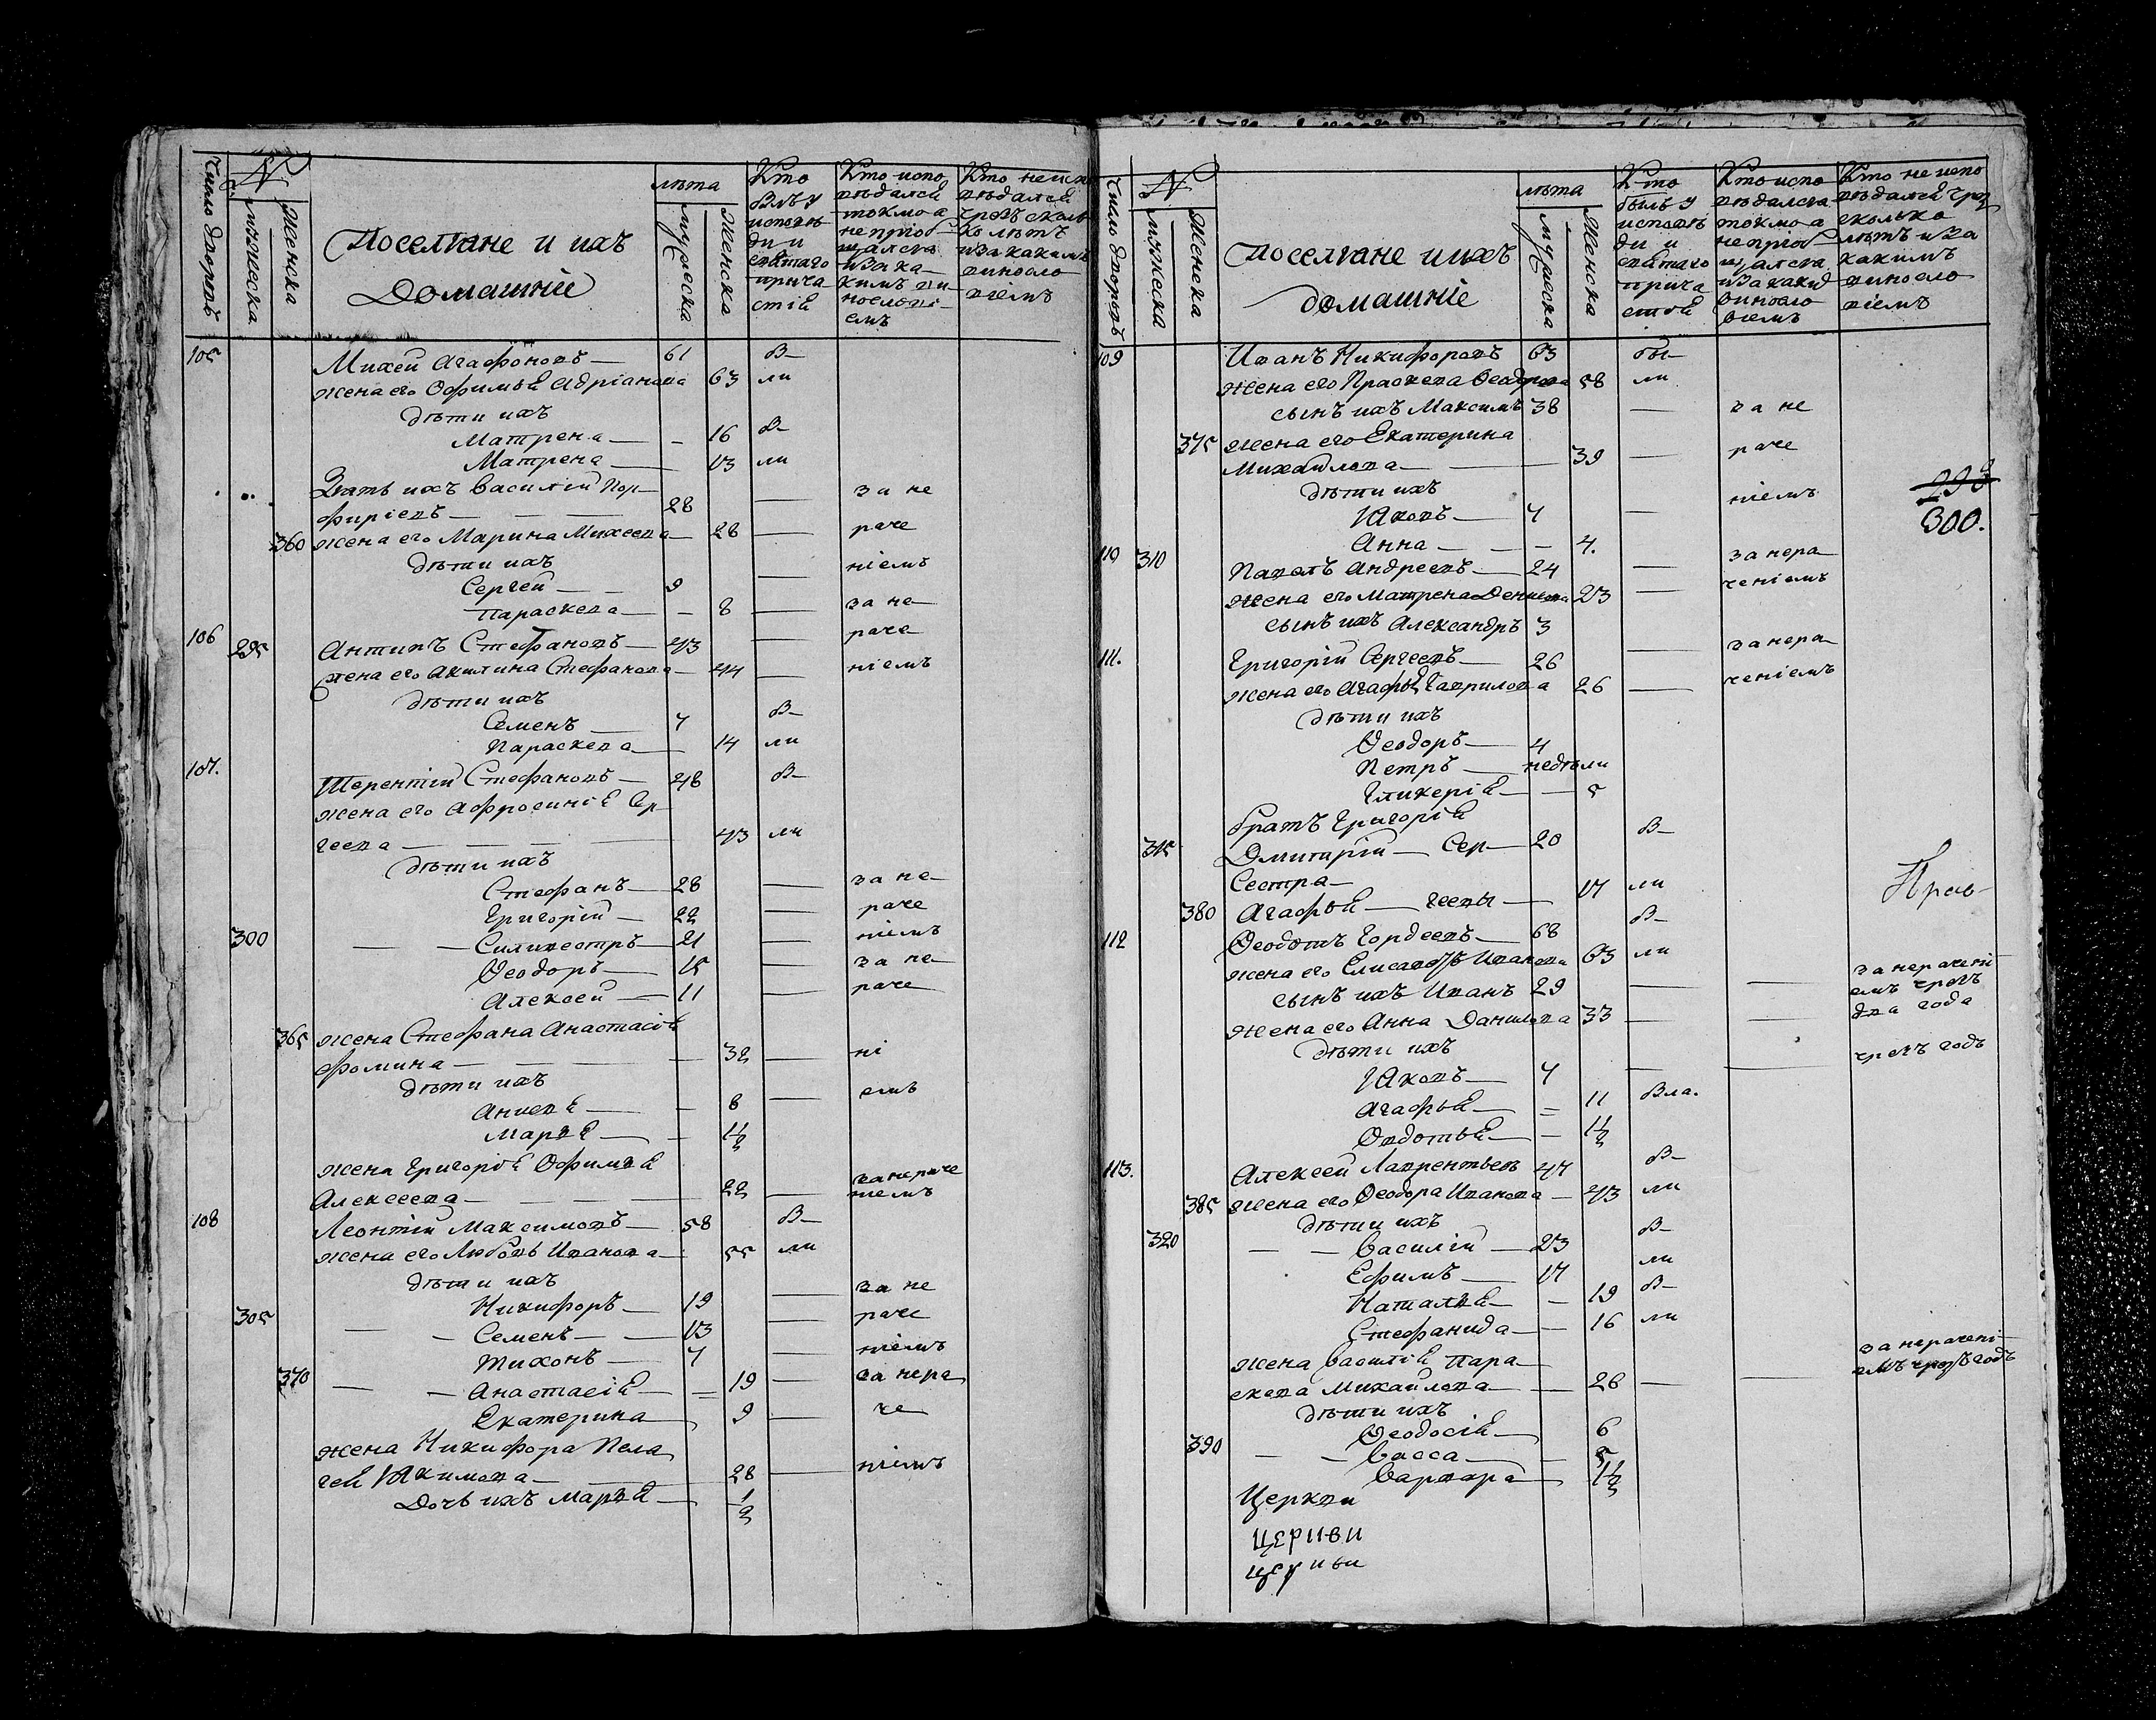 Число дворовъ
№
мужеска
Женска
Поселяне и ихъ
Домашніе
лѣта
мужеска
Женска
Кто
былъ у
исповѣ
ди и
святаго
прича
стія
Кто испо
вѣдался
токмо а
не приоб
щался
и за ка
кимъ ви
нослові
емъ
Кто не испо
вѣдался
чрезъ сколь
ко лѣтъ
и за какимъ
виносло
віемъ
105 Михей Агафоновъ 61 В
жена его Офимья Адріанова 63 ли
дѣти ихъ
Матрена 16 В
Матрена 13 ли
Зять ихъ Василій Пор
фиріевъ 28 за не
360 жена его Марина Михеева 28 раче
дѣти ихъ
Сергей 9 ніемъ
Параскева 8 за не
106 295 Антипъ Стефановъ 43 раче
жена его Акилина Стефанова 44 ніемъ
дѣти ихъ
Семенъ 7 В
Параскева 14 ли
107. Терентій Стефановъ 48 В
жена его Афросинія Сер
геева 43 ли
дѣти ихъ
Стефанъ 28 за не
Григорій 22 раче
300 Силивестръ 21 ніемъ
Ѳеодоръ 15 за не
Алексей 11 раче
365 жена Стефана Анастасія
Фомина 32 ні
дѣти ихъ
Анисья 8 емъ
Марья 1½
жена Григорія Офимья
Алексеева 22 за нераче
ніемъ
108 Леонтій Максимовъ 58 В
жена его Любовь Иванова 55 ли
дѣти ихъ
Никифоръ 19 за не
305 Семенъ 13 раче
Тихонъ 7 ніемъ
370 Анастасія 19 за нера
Екатерина 9 че
жена Никифора Пела
гея Якимова 28 ніемъ
Дочь ихъ Марья ½
Число дворовъ
№
мужеска
Женска
Поселяне и ихъ
домашніе
лѣта
мужеска
Женска
Кто
былъ у
исповѣ
ди и
святаго
прича
стія
Кто испо
вѣдался
токмо а
не приоб
щался
и за каким
виносло
віемъ
Кто не испо
вѣдался чрез
сколько
лѣтъ и за
какимъ
виносло
віемъ
109 Иванъ Никифоровъ 63 бы
жена его Праскева Ѳеодорова 58 ли
сынъ ихъ Максимъ 38 за не
375 жена его Екатерина
Михайлова 39 раче
дѣти ихъ
Яковъ 7 ніемъ
298
300.
Анна 4.
110 310 Павелъ Андреевъ 24 за нера
жена его Матрена Денисова 23 ченіемъ
сынъ ихъ Александръ 3
111. Григорій Сергеевъ 26 за нера
жена его Агафья Гаврилова 26 ченіемъ
дѣти ихъ
Ѳеодоръ 4
Петръ недѣли
Гликерія 5
братъ Григорія
315 Димитрій Сер 20 В
Сестра
380 Агафья геевы 17 ли
112 Ѳеодотъ Гордеевъ 68 В
жена его Елисаветъ Иванова 63 ли
сынъ ихъ Иванъ 29 за нерачені
емъ чрезъ
жена его Анна Данилова 33 два года
дѣти ихъ
Яковъ 7 чрезъ годъ
Агафья 11 Вла.
Овдотья 1½
113. Алексей Лаврентьевъ 47 В
385 жена его Ѳеодора Иванова 43 ли
дѣти ихъ
320 Василій 23 В
Ефимъ 17 ли
Наталья 19 В
Стефанида 16 ли
жена Василія Пара
скева Михайлова 26 за нерачені
емъ чрезъ годъ
дѣти ихъ
Ѳеодосія 6
390 Васса 5
Варвара 1½
Церкви
церкви
церкви